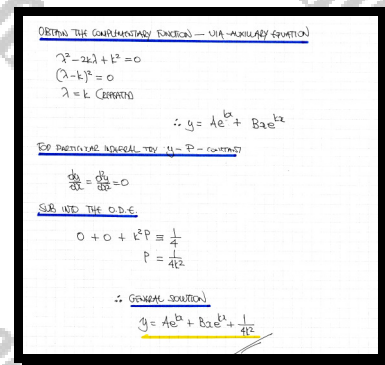 OBTAIN THE COMPLEMENTARY FUNCTION — VIA AUXILIARY EQUATION
λ² - 2kλ + k² = 0
(λ-k)² = 0
λ = k (REPEATED)
∴ y = Ae^kx + Bxe^kx
FOR PARTICULAR INTEGRAL TRY y = P = CONSTANT
dy/dx = d²y/dx² = 0
SUB INTO THE O.D.E.
0 + 0 + k²P ≡ 1/4
P = 1/4k²
∴ GENERAL SOLUTION
y = Ae^kx + Bxe^kx + 1/4k²